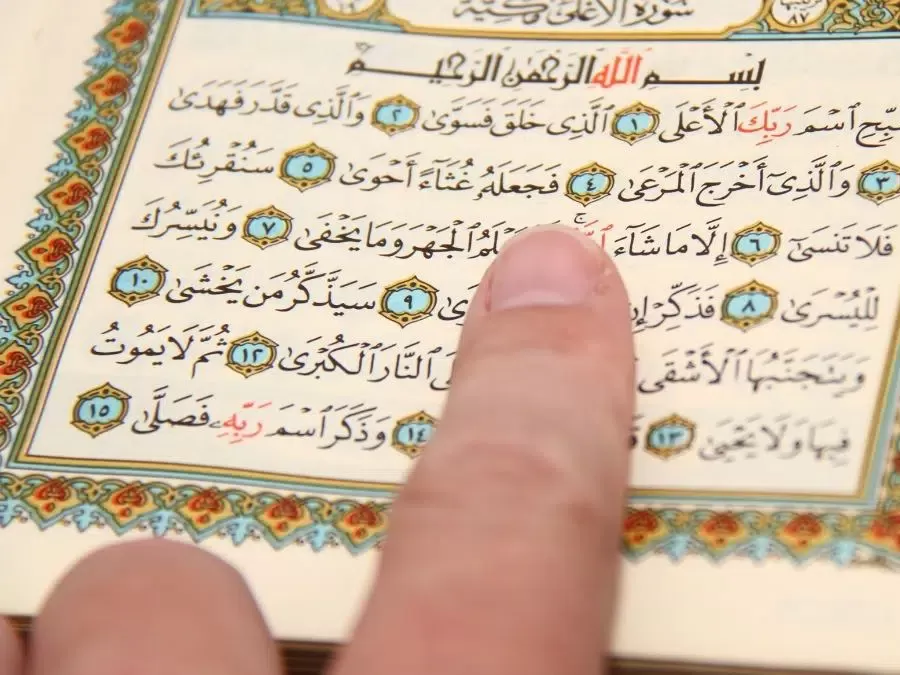 سُورَةُ الأَعْلَىٰ مَكِّيَّة ٨٧
بِسْمِ ٱللَّهِ ٱلرَّحْمَٰنِ ٱلرَّحِيمِ
ٱسْمَ رَبِّكَ ٱلْأَعْلَى ١ ٱلَّذِى خَلَقَ فَسَوَّىٰ ٢ وَٱلَّذِى قَدَّرَ فَهَدَىٰ
٣ وَٱلَّذِىٓ أَخْرَجَ ٱلْمَرْعَىٰ ٤ فَجَعَلَهُۥ غُثَآءً أَحْوَىٰ ٥ سَنُقْرِئُكَ
فَلَا تَنسَىٰٓ ٦ إِلَّا مَا شَآءَ ٱلْجَهْرَ وَمَا يَخْفَىٰ ٧ وَنُيَسِّرُكَ
لِلْيُسْرَىٰ ٨ فَذَكِّرْ ٩ سَيَذَّكَّرُ مَن يَخْشَىٰ ١٠
وَيَتَجَنَّبُهَا ٱلْأَشْقَى ٱلنَّارَ ٱلْكُبْرَىٰ ١٢ ثُمَّ لَا يَمُوتُ
فِيهَا وَلَا يَحْيَىٰ ١٣ ١٤ وَذَكَرَ ٱسْمَ رَبِّهِۦ فَصَلَّىٰ ١٥